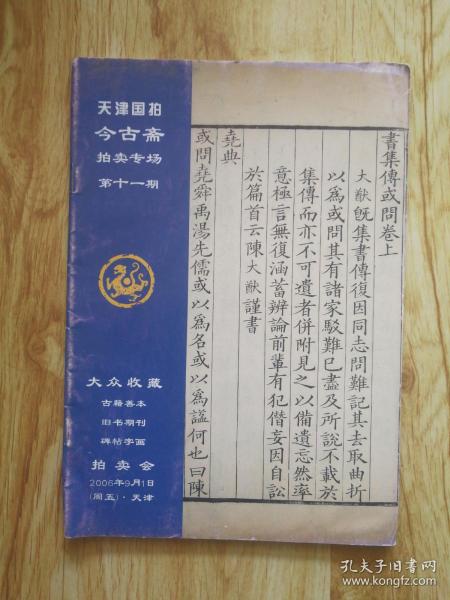 天津国拍
今古斋
拍卖专场
第十一期
大众收藏
古籍善本
旧书期刊
碑帖字画
拍卖会
2006年9月1日
(周五)·天津
書集傳或問卷上
大猷旣集書傳復因同志問難記其去取曲折
以爲或問其有諸家駁難已盡及所說不載於
集傳而亦不可遺者併附見之以備遺忘然率
意極言無復涵蓄辨論前輩有犯僭妄因自訟
於篇首云陳大猷謹書
堯典
或問堯舜禹湯先儒或以爲名或以爲謚何也曰陳
孔夫子旧书网
www.kongfz.com